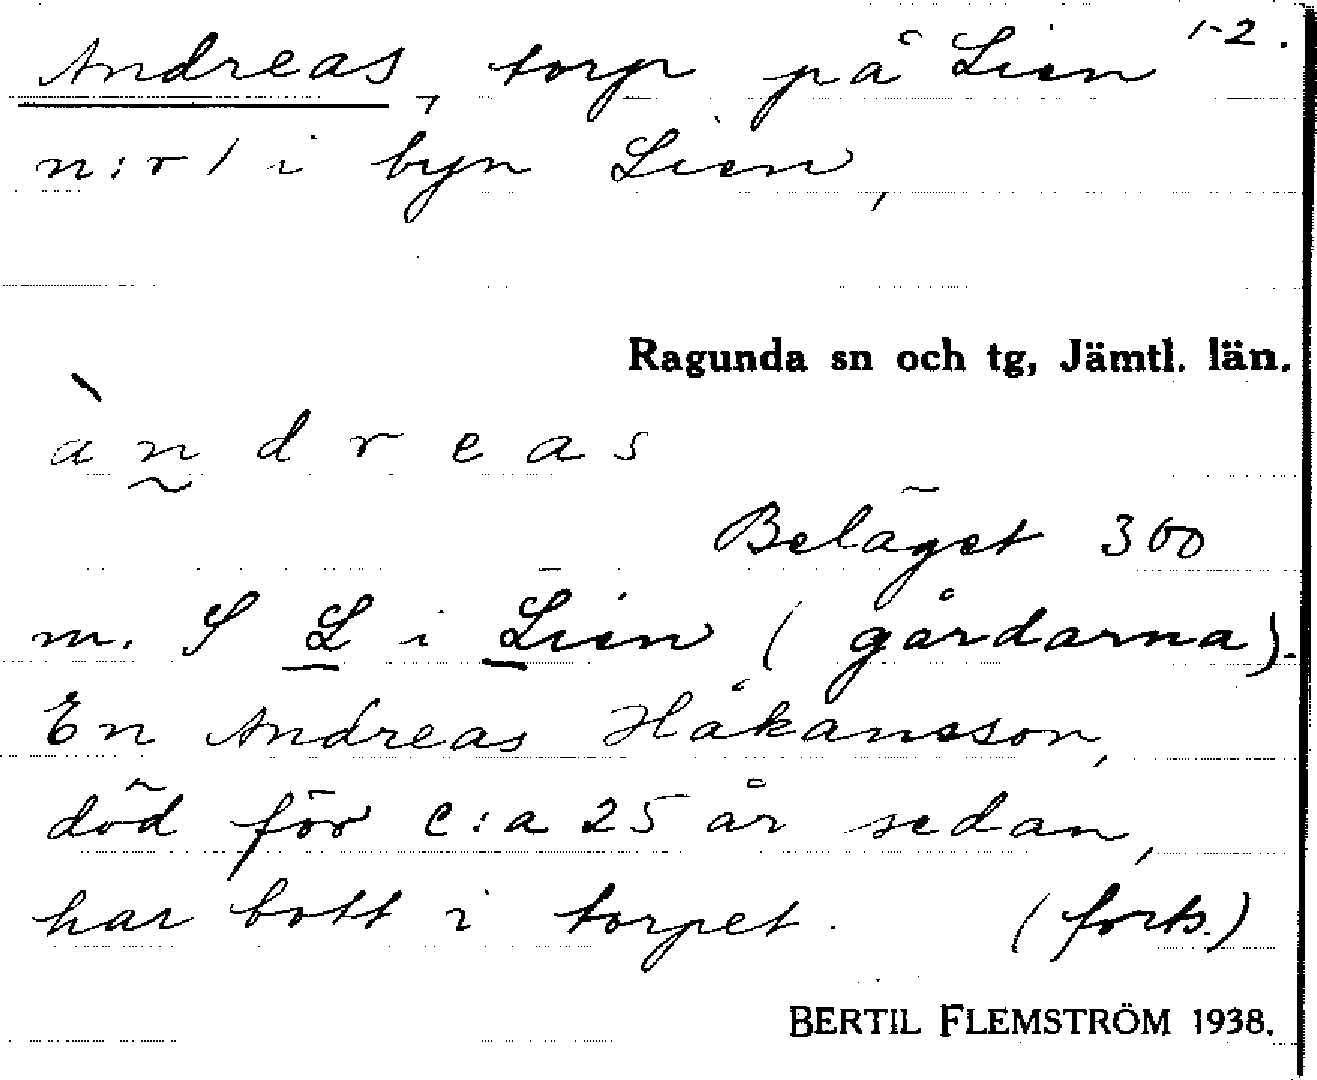 1-2.
Andreas, torp på Lien
n:r 1 i byn Lien,
Ragunda sn och tg, Jämtl. län.
àn̰dreas
Beläget 300
m. S L i Lien (gårdarna).
En Andreas Håkansson,
död för c:a 25 år sedan,
har bott i torpet. (forts.)
BERTIL FLEMSTRÖM 1938.